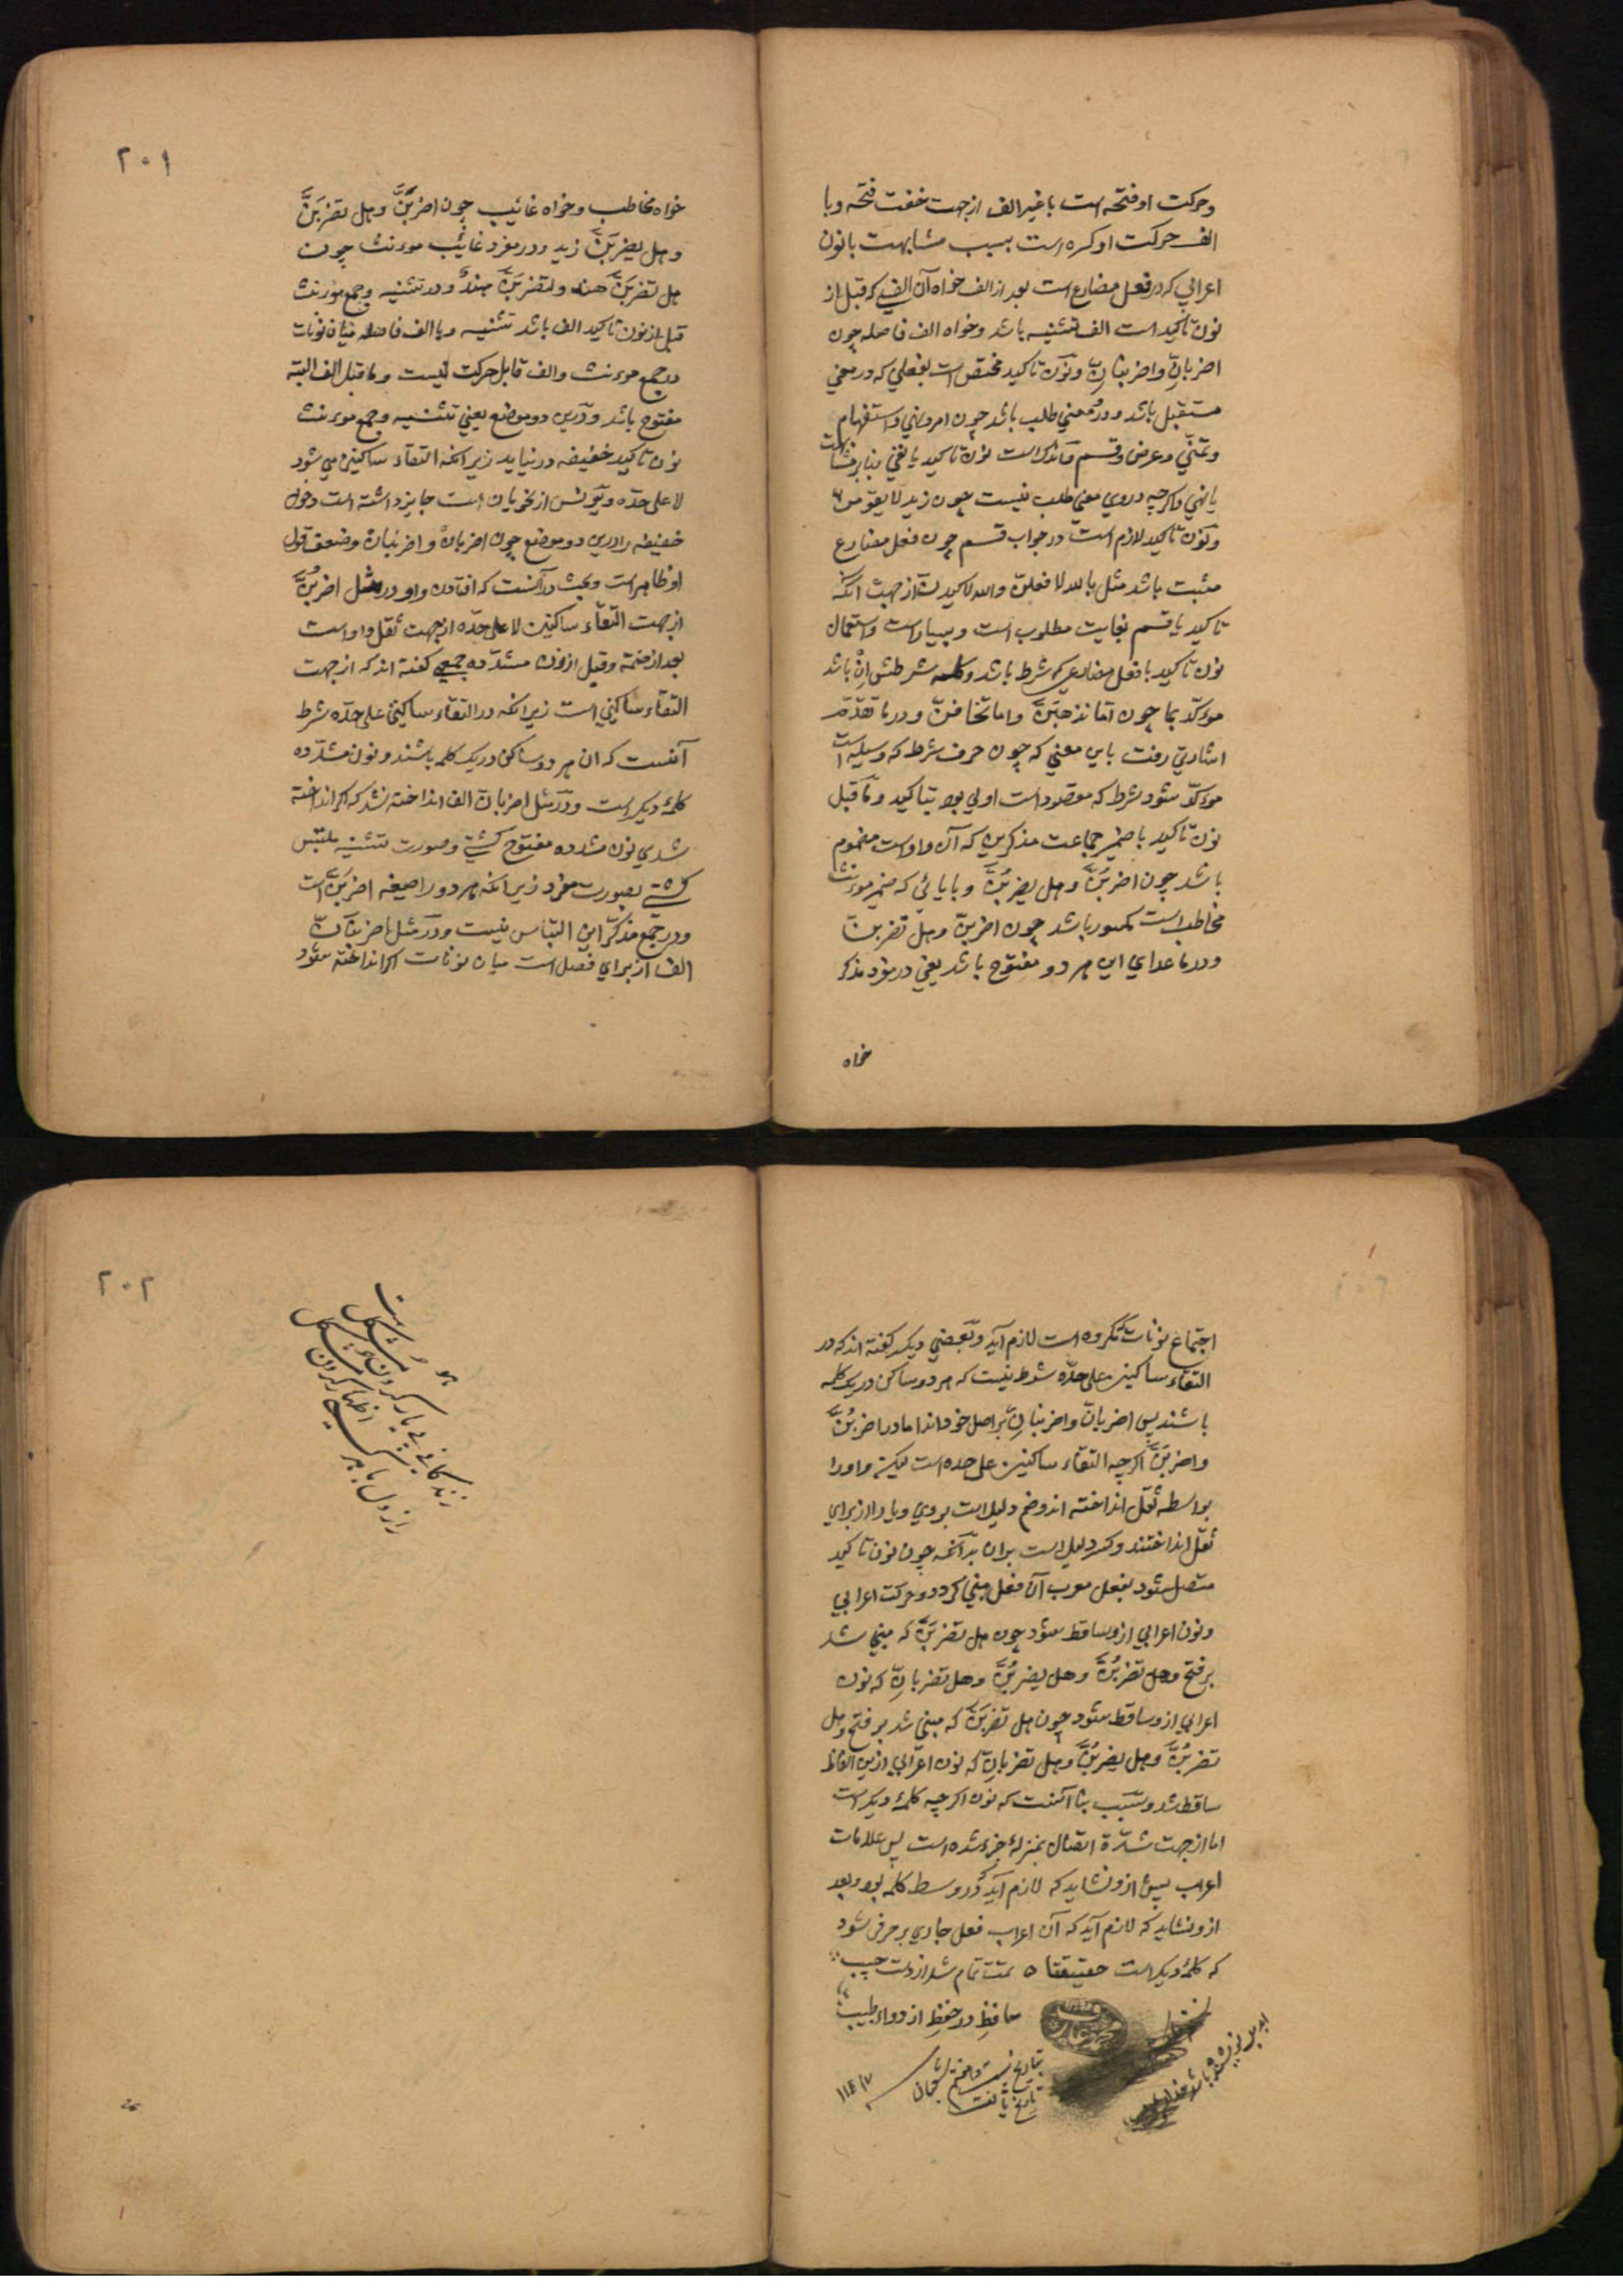 وحرکت او فتحه است با غیر الف از جهت خفت فتحه وبا
الف حرکت او کسره است بسبب مشابهت با نون
اعرابی که در فعل مضارع است بعد از الف خواه آن الفی که قبل از
نون تاکید است الف تثنیه باشد وخواه الف فاصله چون
اضربانِّ واضربنانِّ ونون تاکید مختص است بفعلی که در معنی
مستقبل باشد ودر معنی طلب باشد چون امر ونهی واستفهام
وتمنّی وعرض وقسم وآنکه است نون تاکید با نفی بنابر مشابهت
با نهی واکرچه در وی معنی طلب نیست چون زید لا یقومن
ونون تاکید لازم است در جواب قسم چون فعل مضارع
مثبت باشد مثل بالله لافعلنّ والله لاکیدنّ از جهت آنکه
تاکید با قسم بغایت مطلوب است وبسیار است واستعمال
نون تاکید با فعل مضارعی که شرط باشد وکلمه شرطش اِنْ باشد
موءکّد بما چون امّا تذهبَنَّ واما تخافنّ ودر ما تقدّم
اشارتی رفت باین معنی که چون حرف شرط که وسیله است
موءکّد شود شرط که مقصود است اولی بود بتاکید وما قبل
نون تاکید با ضمیر جماعت مذکرین که آن واو است مضموم
باشد چون اضربُنَّ وهل یضربُنَّ وبا یائی که ضمیر موءنث
مخاطب است مکسور باشد چون اضربنّ وهل تضربنّ
ودر ما عدای این هر دو مفتوح باشد یعنی در مفرد مذکر
خواه
۲۰۱
خواه مخاطب وخواه غائب چون اضربَنَّ وهل تضربَنَّ
وهل یضربَنَّ زید ودر مفرد غائب موءنث چون
هل تضربَنَّ هند ولتضربَنَّ هندٌ ودر تثنیه وجمع موءنث
قبل از نون تاکید الف باشد تثنیه ویا الف فاصله میان نونات
در جمع موءنث والف قابل حرکت نیست وما قبل الف البته
مفتوح باشد ودرین دو موضع یعنی تثنیه وجمع موءنث
نون تاکید خفیفه در نیاید زیرا که التقاء ساکنین می شود
لا علی حدّه ویونس از نحویان است جایز داشته است دخول
خفیفه را درین دو موضع چون اضربانْ واضربنانْ وضعف قول
او ظاهر است وبحث در آنست که افتادن واو در مثل اضربُنَّ
از جهت التقاء ساکنین لا علی حدّه از جهت ثقل واو است
بعد از ضمّه وقبل از نون مشدّده جمعی کفته اند که از جهت
التقاء ساکنین است زیرا که در التقاء ساکنین علی حدّه شرط
آنست که ان هر دو ساکن در یک کلمه باشند ونون مشدّده
کلمهٔ دیکر است ودر مثل اضربانّ الف انداخته نشد که اکر انداخته
شدی نون مشدده مفتوح کشتی وصورت تثنیه ملتبس
کشتی بصورت مفرد زیرا که هر دو را صیغه اضربَنَّ است
ودر جمع مذکّر این التباس نیست ودر مثل اضربنانّ
الف از برای فصل است میان نونات اکر انداخته شود
اجتماع نونات که مکروه است لازم آید وبعضی دیکر کفته اند که در
التقاء ساکنین علی حدّه شرط نیست که هر دو ساکن در یک کلمه
باشند پس اضربانّ واضربنانِّ بر اصل خود اند اما در اضربُنَّ
واضربِنَّ اکرچه التقاء ساکنین علی حده است لیکن واو را
بواسطه ثقل انداخته اند وضم دلیل است بر وی ویا را از برای
ثقل انداختند وکسر دلیل است بران بدآنکه چون نون تاکید
متصل شود بفعل معرب آن فعل مبنی کردد وحرکت اعرابی
ونون اعرابی ازو ساقط شود چون هل تضربَنَّ که مبنی شد
بر فتح وهل تضربُنَّ وهل یضربُنَّ وهل تضربانِّ که نون
اعرابی ازو ساقط شود چون هل تضربَنَّ که مبنی شد بر فتح وهل
تضربُنَّ وهل یضربُنَّ وهل تضربانِّ که نون اعرابی ازین الفاظ
ساقط شد وسبب بنا آنست که نون اکرچه کلمهٔ دیکر است
اما از جهت شدّة اتصال بمنزلهٔ جزء شده است پس علامات
اعراب پیش ازو نشاید که لازم آید که در وسط کلمه بود وبعد
ازو نشاید که لازم آید که آن اعراب فعل جاری بر حرفی شود
که کلمهٔ دیکر است حقیقتا ٥ تمت تمام شد از دست حبیب
حافظ در حفظ از دواء طبیب
بتاریخ
۲۰۲
هو
زندکانی بی یار کردن مشکل است
راز دل با هر کسی اظهار کردن مشکل